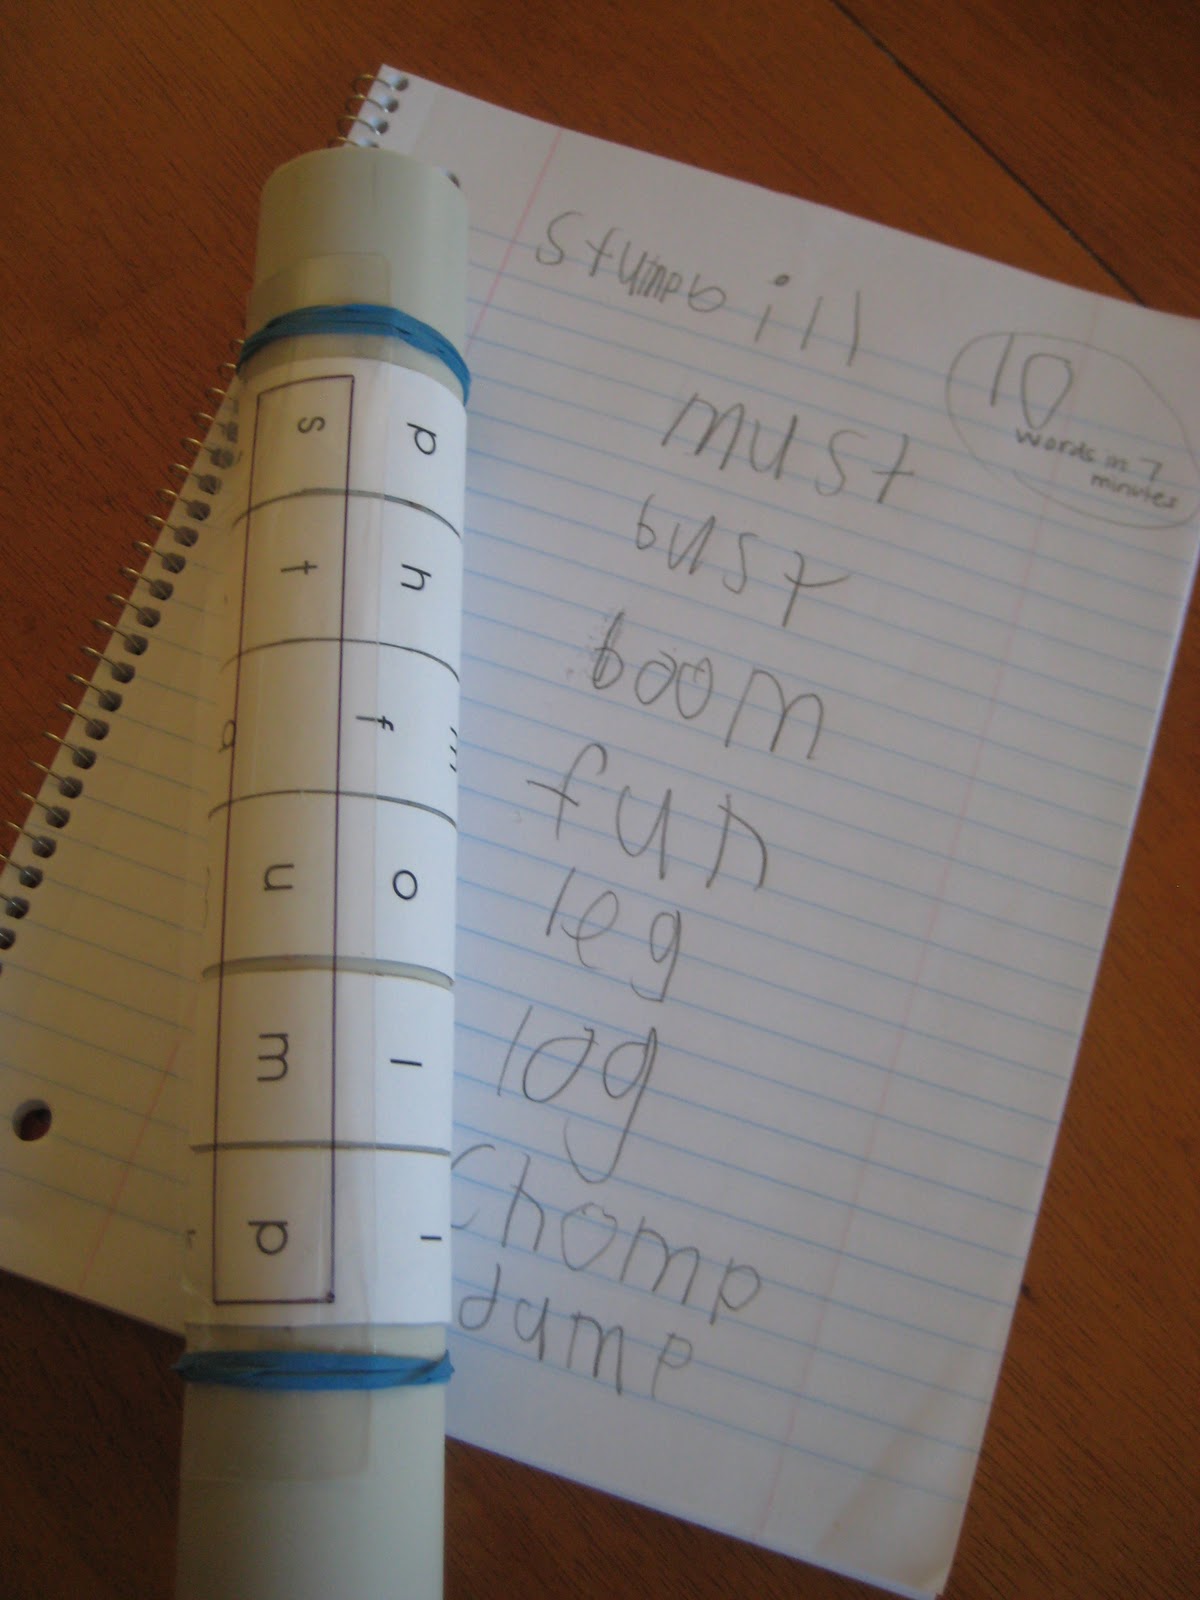 stump bill
10
words in 7
minutes
must
bust
boom
fun
leg
log
chomp
dump
p h f o l
s t u m p